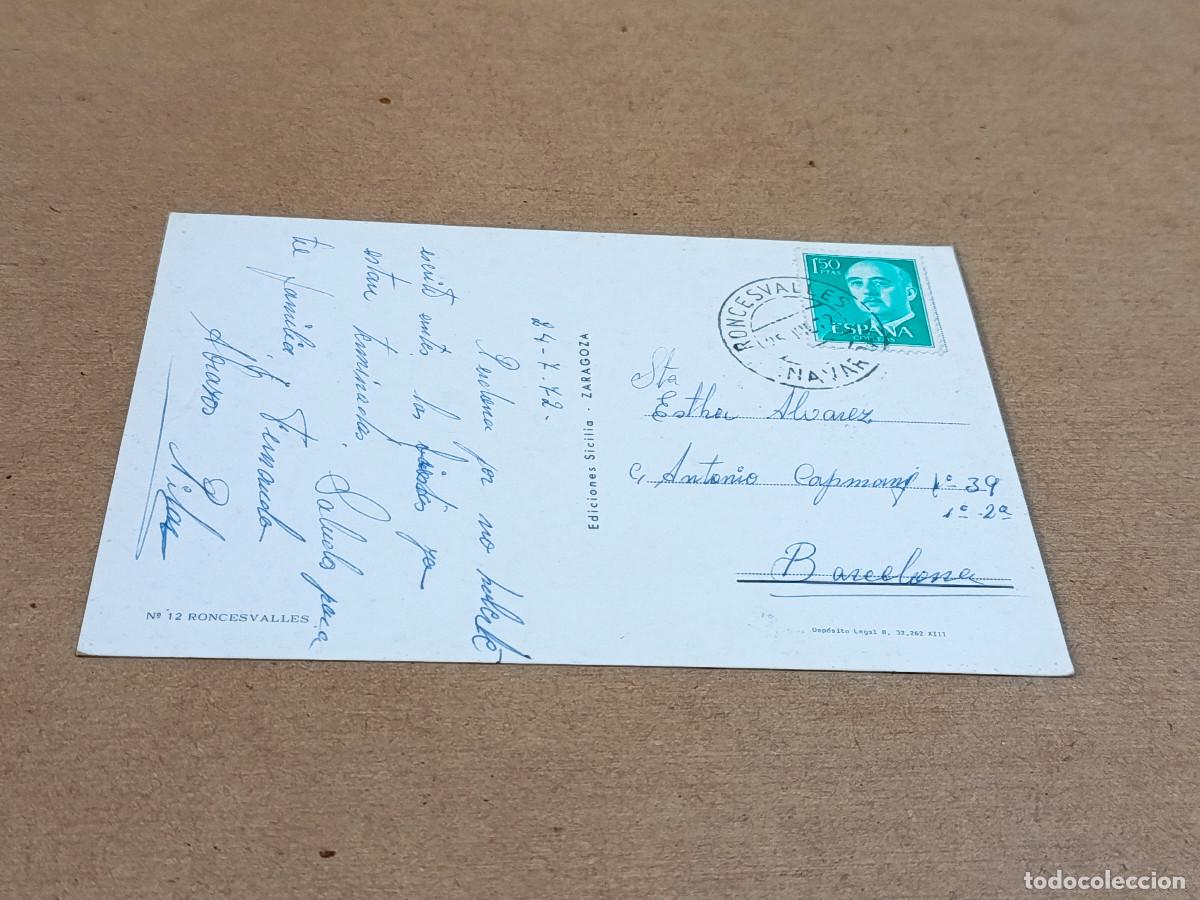 24-7-72.
Perdona por no haberte
escrito antes, las fiestas ya
estan terminadas. Saludos para
tu familia, y Fernando
Abrazos
Pilar
Nº 12 RONCESVALLES
Ediciones Sicilia - ZARAGOZA
1'50
PTAS
ESPAÑA
CORREOS
RONCESVALLES
NAVARRA
Sta
Esther Alvarez
C/ Antonio Capmany nº 39
1º-2ª
Barcelona
Depósito Legal B. 32.262 XIII
todocoleccion